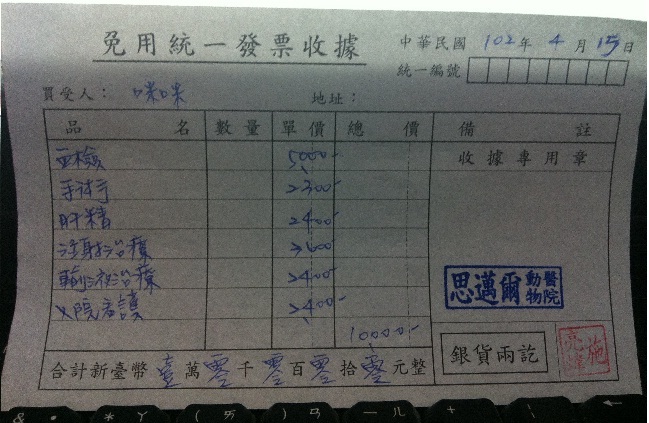 免用統一發票收據
中華民國 102 年 4 月 15 日
統一編號
買受人： 咪咪 地址：
品名 數量 單價 總價 備註
收據專用章
血檢 5000-
手術 2300-
肝精 2400-
注射治療
輸液治療 2400-
入院看護 2400-
思邁爾 動物醫院
10000-
銀貨兩訖
合計新臺幣 壹 萬 零 千 零 百 零 拾 零 元整